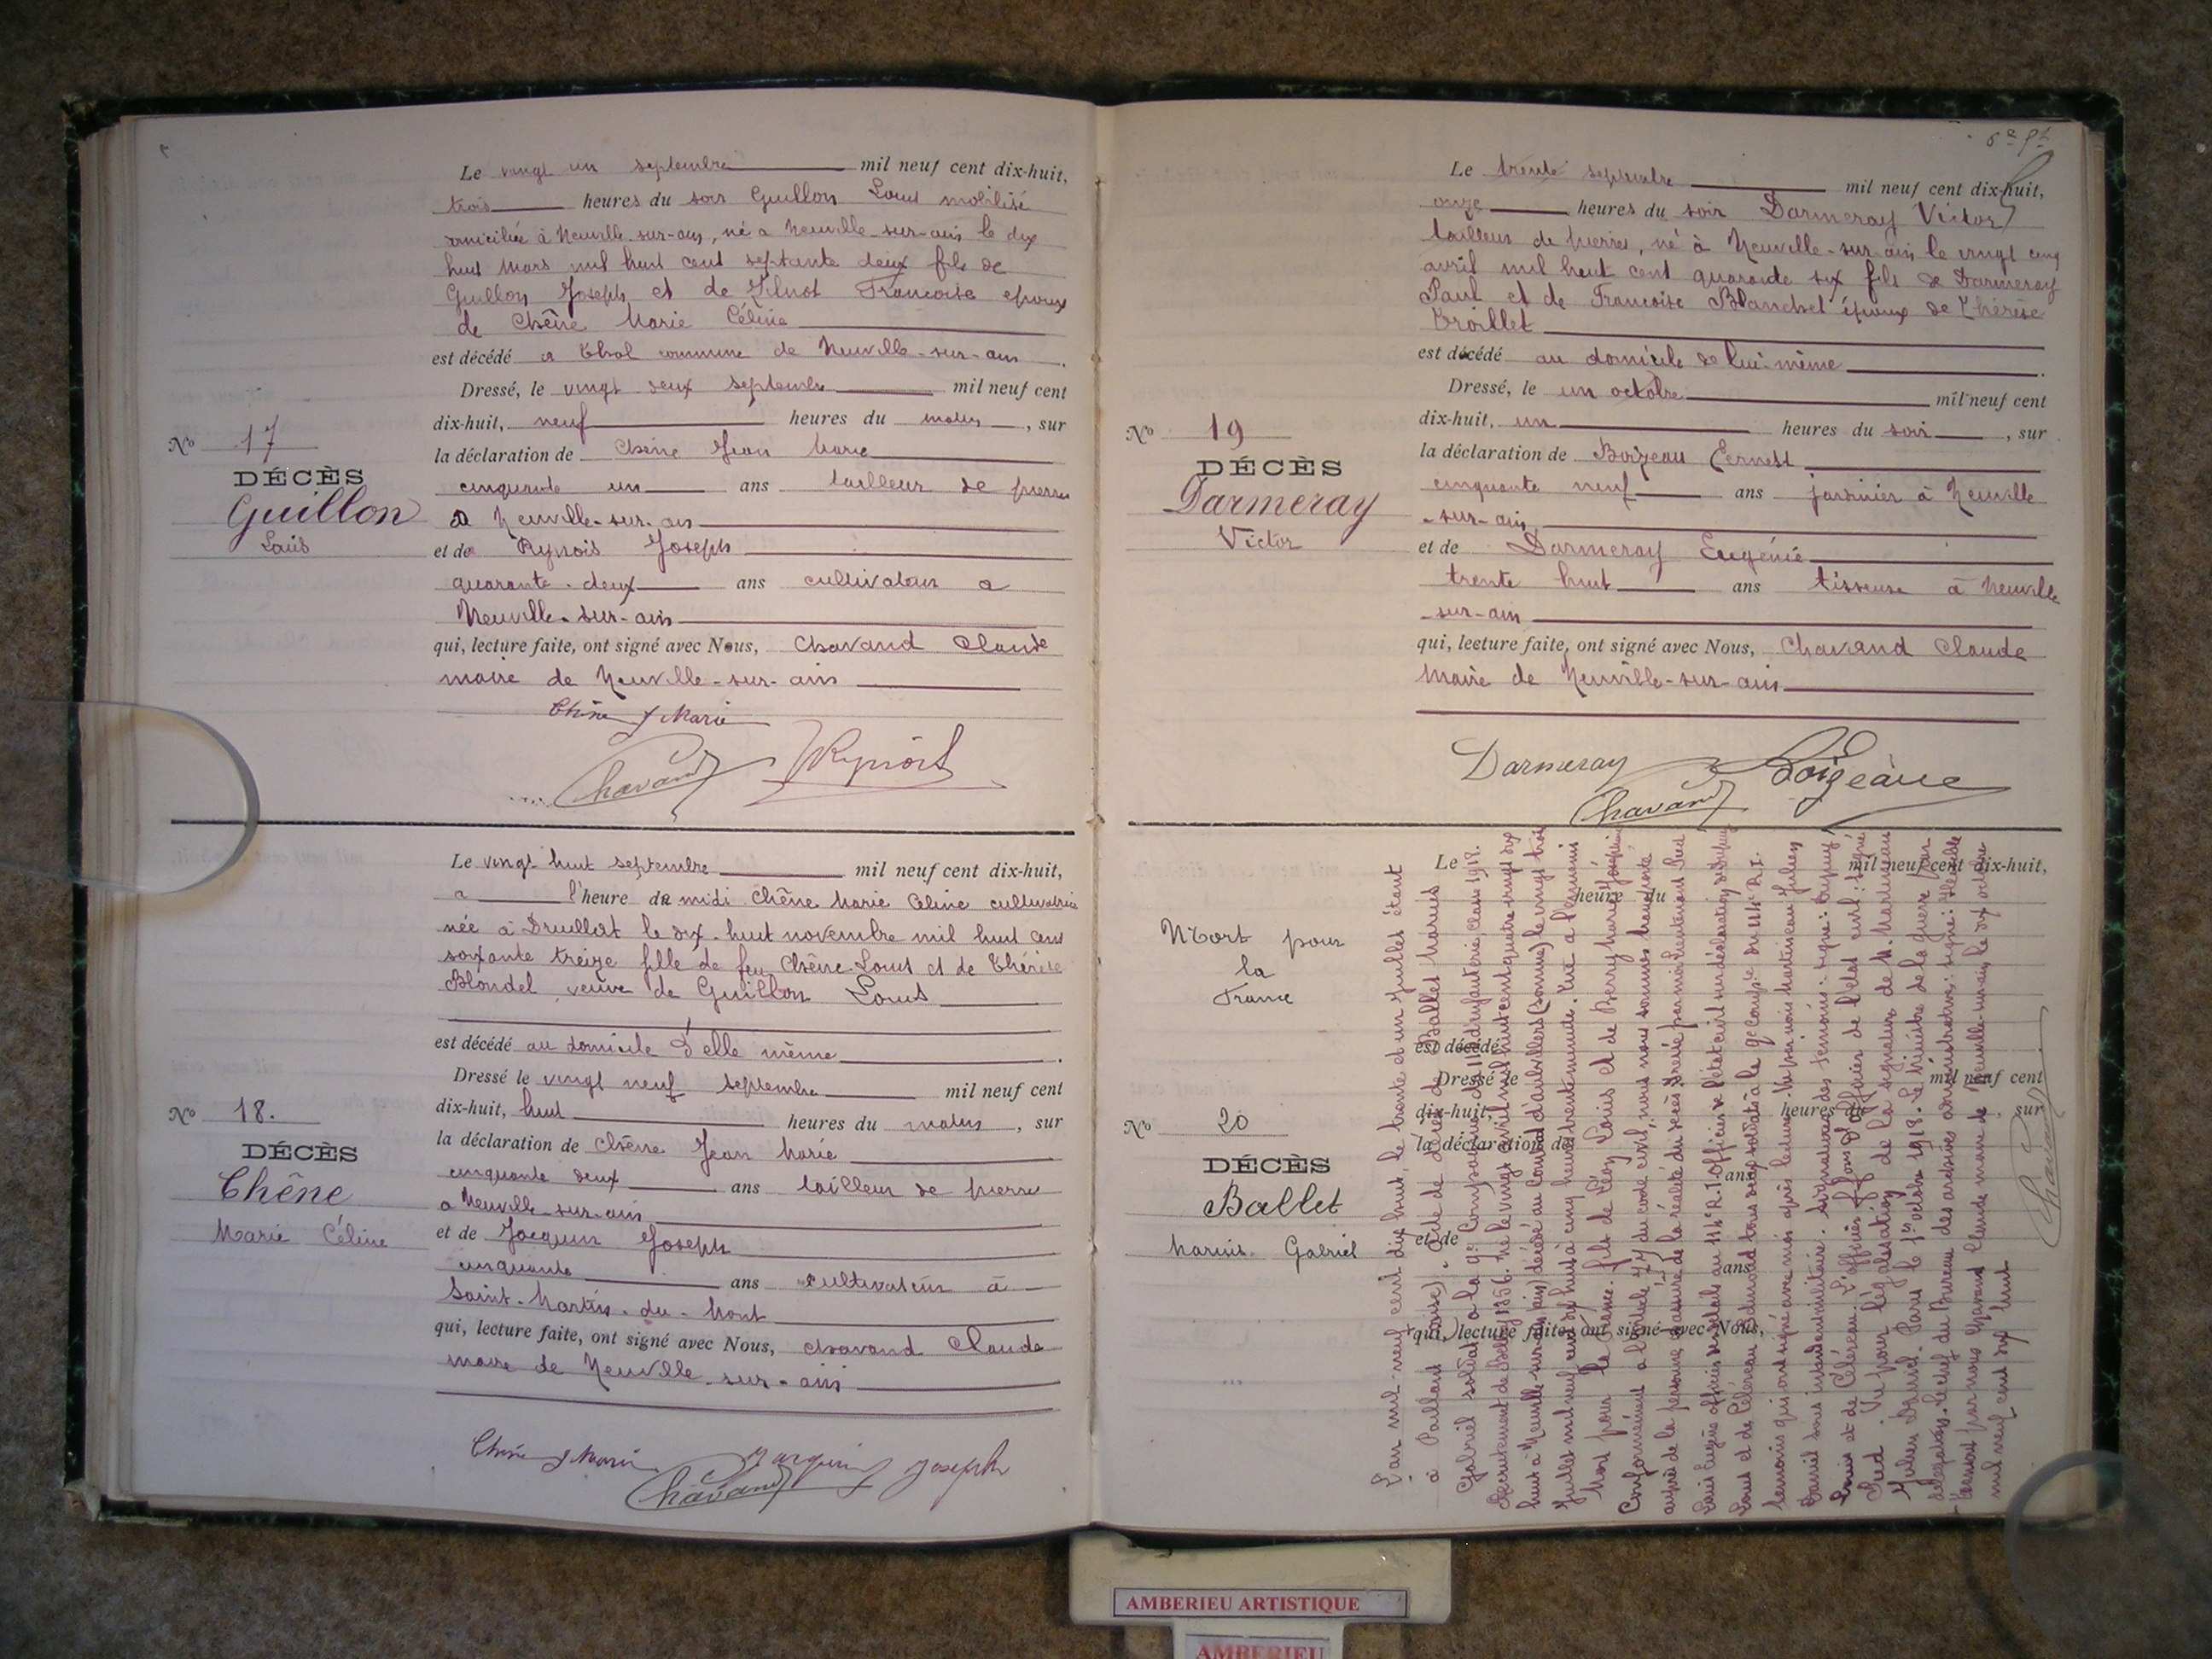 Le vingt un septembre mil neuf cent dix-huit,
trois heures du soir Guillon Louis mobilisé
domiciliée à Neuville-sur-ain, né a Neuville-sur-ain le dix
huit Mars mil huit cent septante deux fils de
Guillon Joseph et de Françoise epoux
de Chêne Marie Céline
est décédé a Thol commune de Neuville-sur-ain.
Dressé, le vingt deux septembre mil neuf cent
dix-huit, neuf heures du matin, sur
la déclaration de Chêne Jean Marie
cinquante un ans tailleur de pierre
a Neuville-sur-ain
et de Rynois Joseph
quarante-deux ans cultivateur a
Neuville-sur-ain
qui, lecture faite, ont signé avec Nous, Chavand Claude
maire de Neuville-sur-ain
Chêne J Marie
Chavand Rynois
No 17
DÉCÈS
Guillon
Louis
Le vingt huit septembre mil neuf cent dix-huit,
a l'heure de midi Chêne Marie Céline cultivatrice
née à Druillat le dix-huit novembre mil huit cent
soixante treize fille de feu Chêne Louis et de Thérèse
Blondel, veuve de Guillon Louis
est décédé au domicile d'elle même.
Dressé le vingt neuf septembre mil neuf cent
dix-huit, huit heures du matin, sur
la déclaration de Chêne Jean Marie
cinquante deux ans tailleur de pierre
a Neuville-sur-ain
et de Jacquin Joseph
cinquante ans cultivateur à
Saint-Martin-du-Mont
qui, lecture faite, ont signé avec Nous, Chavand Claude
maire de Neuville-sur-ain
Chêne J Marie Jacquin Joseph
Chavand
No 18.
DÉCÈS
Chêne
Marie Céline
Le trente septembre mil neuf cent dix-huit,
onze heures du soir Darmeray Victor
tailleur de pierres, né à Neuville-sur-ain le vingt cinq
avril mil huit cent quarante six fils de Darmeray
Paul et de Francoise Blanchet époux de Thérèse
Troillet
est décédé au domicile de lui-même.
Dressé, le un octobre mil neuf cent
dix-huit, un heures du soir, sur
la déclaration de Boizeau Ernest
cinquante neuf ans jardinier à Neuville
-sur-ain
et de Darmeray Eugénie
trente huit ans tisseuse à Neuville
-sur-ain
qui, lecture faite, ont signé avec Nous, Chavand Claude
Maire de Neuville-sur-ain
Darmeray Boizeau
Chavand
No 19
DÉCÈS
Darmeray
Victor
Mort pour
la
France
No 20
DÉCÈS
Ballet
Marius Gabriel
Le mil neuf cent dix-huit,
heure du
est décédé
Dressé le mil neuf cent
dix-huit, heures du, sur
la déclaration de
ans
et de
ans
qui, lecture faite, ont signé avec Nous,
L'an mil neuf cent dix huit, le trente et un Juillet étant
à Paillart (Oise). Acte de décès de Ballet Marius
Gabriel soldat a la 9e Compagnie du d'Infanterie, classe 1918.
Recrutement de Belley 1366. Né le vingt avril mil huit cent quatre vingt dix
huit à Neuville-sur-ain (Ain) décédé au d'aubvillers (Somme) le vingt trois
Juillet mil neuf cent dix huit à cinq heures trente minute. Tué a l'ennemi
Mort pour la France. fils de Léon Louis et de Berry Marie Joséphine
Conformément a l'article 77 du code civil, nous nous sommes transporté
auprès de la personne et assuré de la réalité du décès. Dressé par
Louis officier R.I. Officier de l'état civil sur déclaration
Louis et de Céléreau tous deux soldats à la 9e Compie du R.I.
temoins qui ont signé avec nous après lecture. Vu par nous Martineau Julien
militaire. Signatures des temoins: signé:
Louis et de Céléreau. L'officier de l'Etat civil: signé
Vu pour légalisation de la signature de M. Martineau
Julien Paris le octobre 1918. Le Ministre de la guerre par
delegation. Le chef du Bureau des archives administratives: signé:
Transcrit par nous Chavand Claude maire de Neuville-sur-ain, le dix octobre
mil neuf cent dix huit
Chavand
AMBERIEU ARTISTIQUE
AMBERIEU